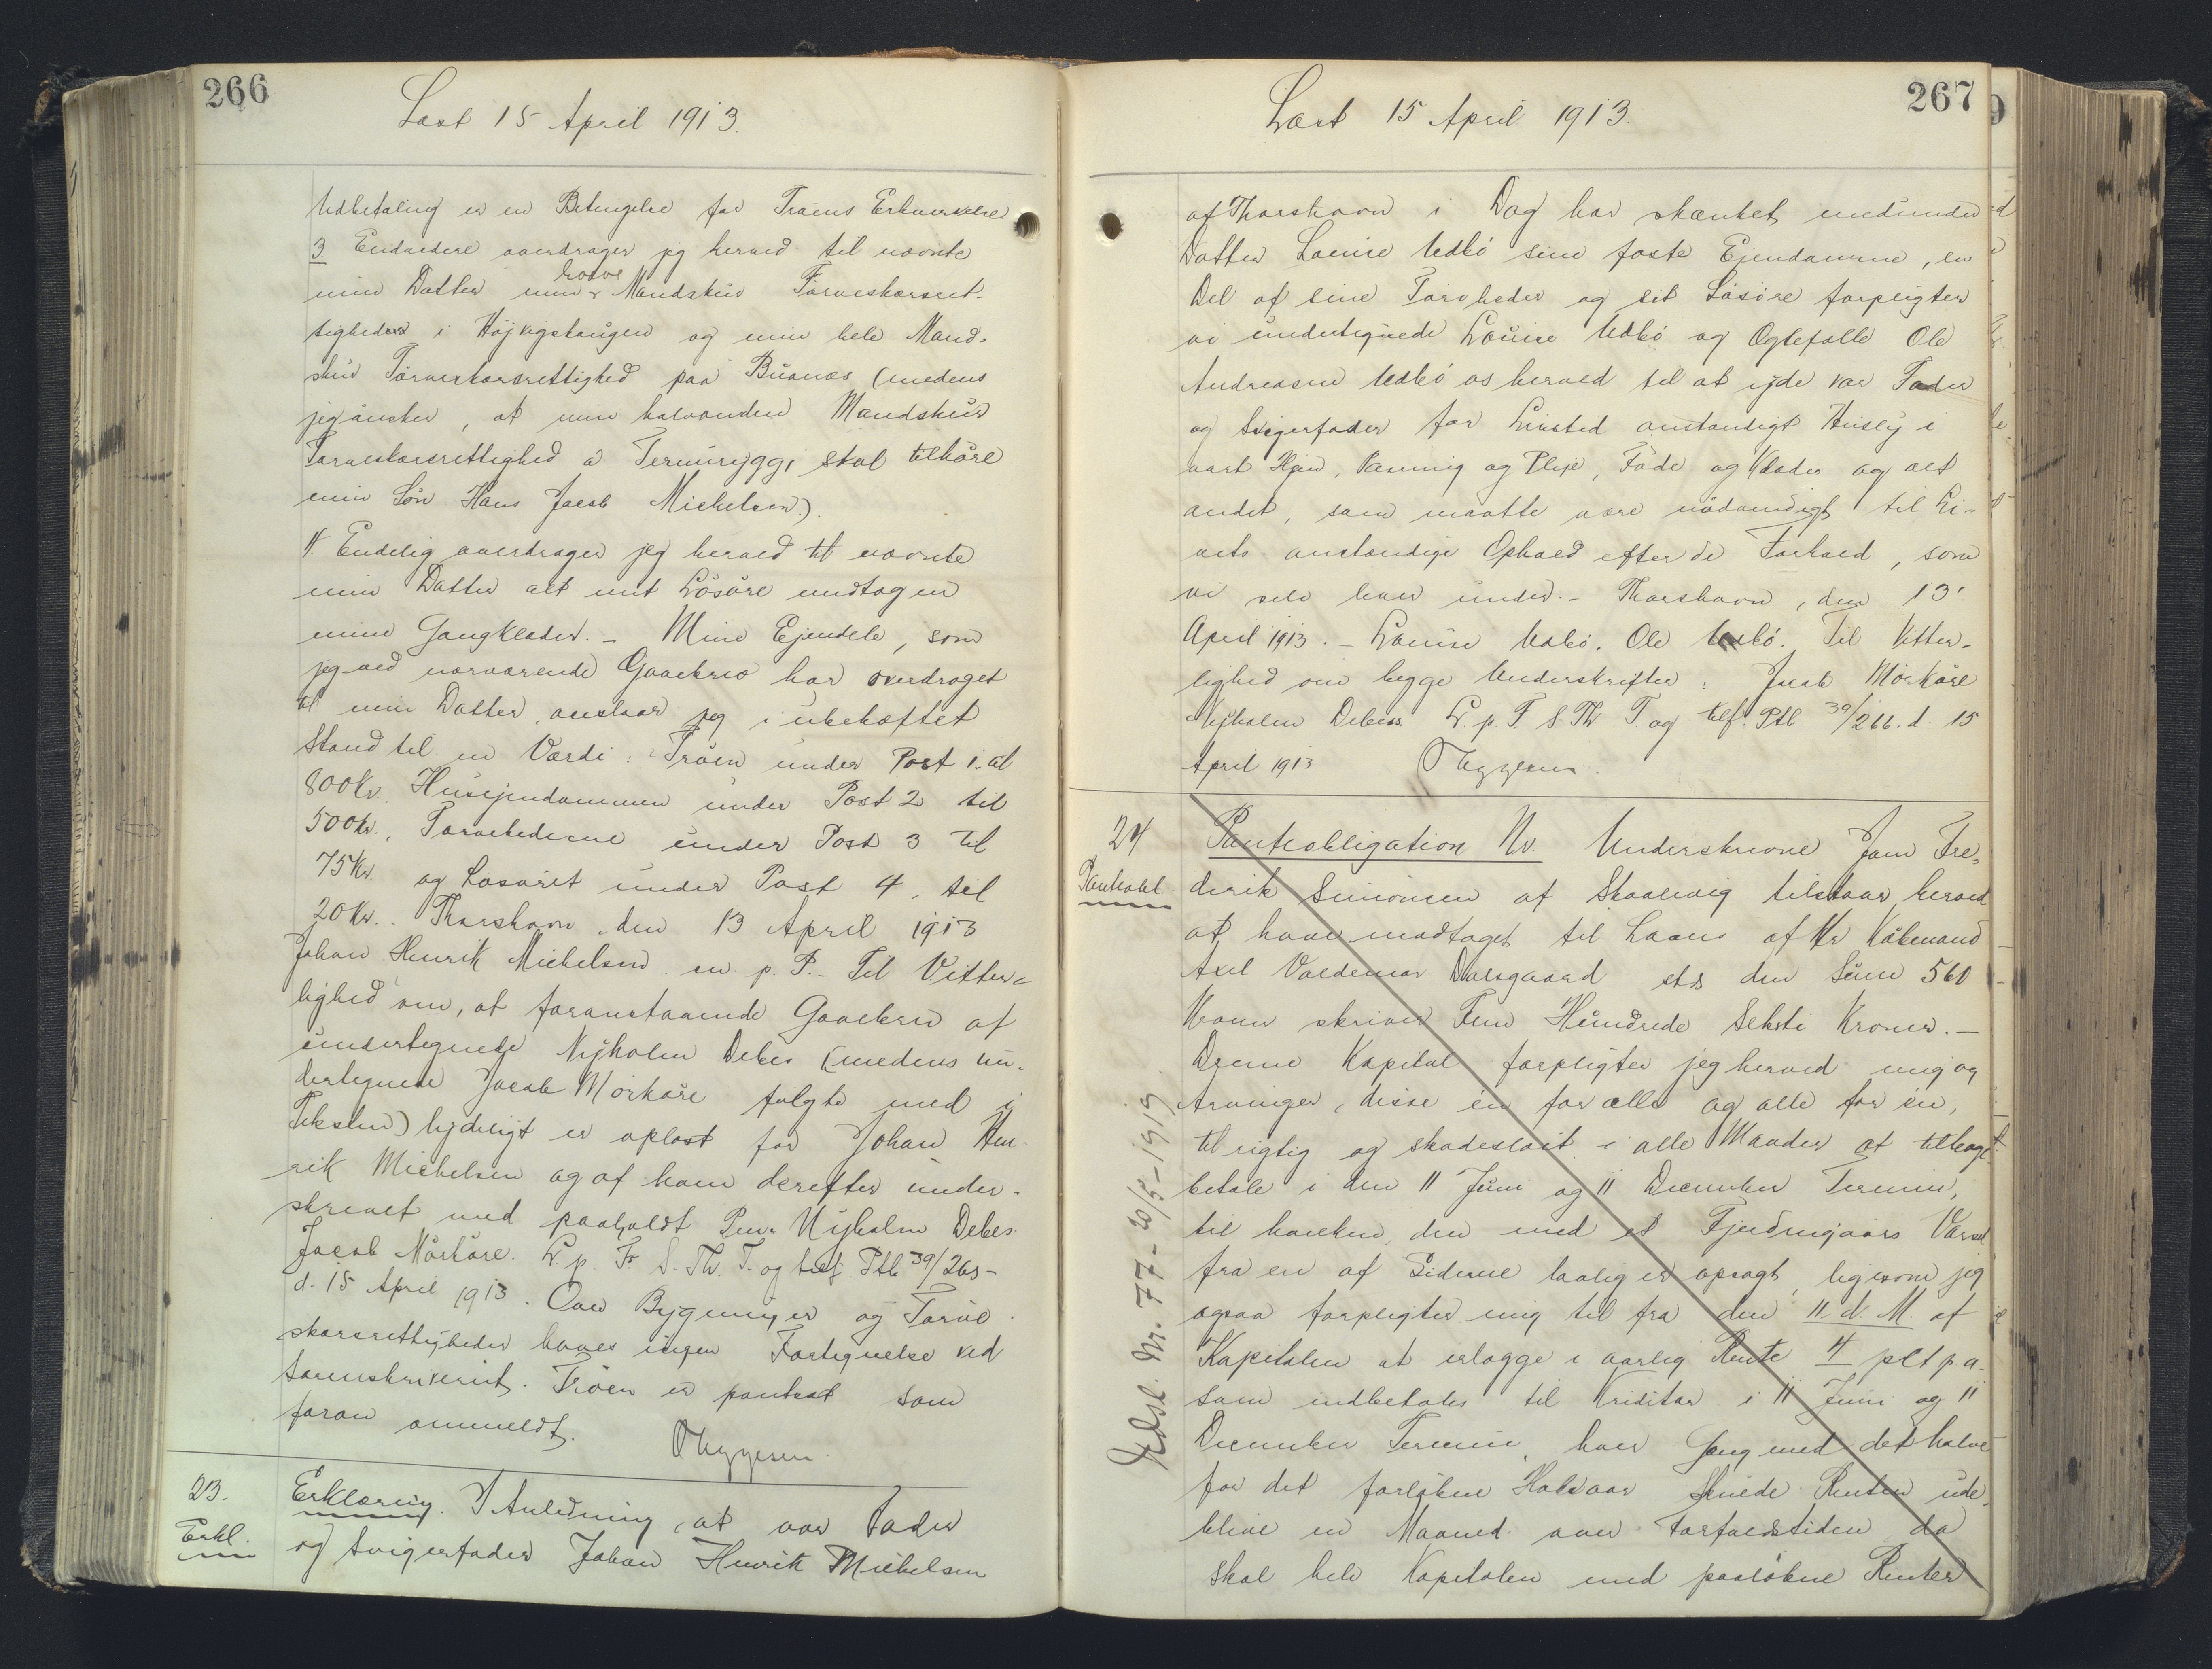 266
Læst 15 April 1913.
Udbetaling er en Betingelse for Trøens Erhvervelse
3 Endvidere overdrager jeg herved til nævnte
min Datter min halve Mandskur Tørveskærsret-
tigheder i Højvigshaugen og min hele Mand-
skur Tørveskærsrettighed paa Buanes (medens
jeg ønsker, at min halvanden Mandskur
Tørveskærsrettighed a skal tilhøre
min Søn Hans Jacob Michelsen).
4. Endelig overdrager jeg herved til nævnte
min Datter alt mit Løsøre undtagen
mine Gangklæder. – Mine Ejendele, som
jeg ved nærværende Gavebrev har overdraget
til min Datter, anslaar jeg i ubehæftet
Stand til en Værdi: Trøen under Post 1. at
800 Kr. Husejendommen under Post 2 til
500 Kr., Tørvehederne under Post 3 til
75 Kr. og Løsøret under Post 4, til
20 Kr. Thorshavn, den 13 April 1913
Johan Henrik Michelsen m. p. P. – Til Vitter-
lighed om, at foranstaaende Gavebrev af
undertegnede Nyholm Debes (medens un-
dertegnede Jacob Mørkøre fulgte med i
Teksten) lydeligt er oplæst for Johan Hen-
rik Michelsen og af ham derefter under-
skrevet med paaholdt Pen. Nyholm Debes
Jacob Mørkøre. L. p. F. S. Th. T. og tilf. Ptb 39/265 –
d. 15 April 1913. Over Bygninger og Tørve-
skærsrettigheder haves ingen Fortegnelse ved
Sorenskriveriet. Trøen er pantsat som
foran anmeldt.
23.
Erkl.
Erklæring. I Anledning, at vor Fader
og Svigerfader Johan Henrik Michelsen
267
Læst 15 April 1913.
af Thorshavn i Dag har skænket medunder
Datter Louise Udbø sine faste Ejendomme, en
Del af sine Tørvheder og sit Løsøre forpligter
vi undertegnede Louise Udbø og Ægtefælle Ole
Andreasen Udbø os herved til at yde vor Fader
og Svigerfader for Livstid anstændigt Husly i
vort Hjem, Varming og Pleje, Føde og Klæder og alt
andet, som maatte være nødvendigt til Li-
vets anstændige Ophold efter de Forhold, som
vi selv lever under. – Thorshavn, den 13'
April 1913. – Louise Udbø. Ole Udbø. Til Vitter-
lighed om begge Underskrifter: Jacob Mørkøre
Nyholm Debess L. p. F. S. Th T. og tilf. Ptb 39/266. d. 15
April 1913
24
Pantobl.
Panteobligation Nr. Underskrevne Jom Fre-
derik Simonsen af Skaalevig tilstaar herved
at have modtaget til Laans af Hr Købmand
Axel Valdemar Dalsgaard sts den Sum 560
Kroner skriver Fem Hundrede Seksti Kroner. –
Denne Kapital forpligter jeg herved mig og
Arvinger, disse én for alle og alle for én,
til rigtig og skadesløst i alle Maader at tilbage
betale i den 11 Juni og 11 December Termin,
til hvilken den med et Fjerdingaars Varsel
fra en af Siderne lovlig er opsagt, ligesom jeg
ogsaa forpligter mig til fra den 11. d. M. af
Kapitalen at erlægge i aarlig Rente 4 pct p a.
som indbetales til Kreditor i 11 Juni og 11
December Termin, hver Gang med det halve
for det forløbne Halvaar Skulde Renten ude-
blive en Maaned over Forfaldstiden da
skal hele Kapitalen med paaløbne Renter
Udsl. Nr. 77 – 20/5 – 1919.